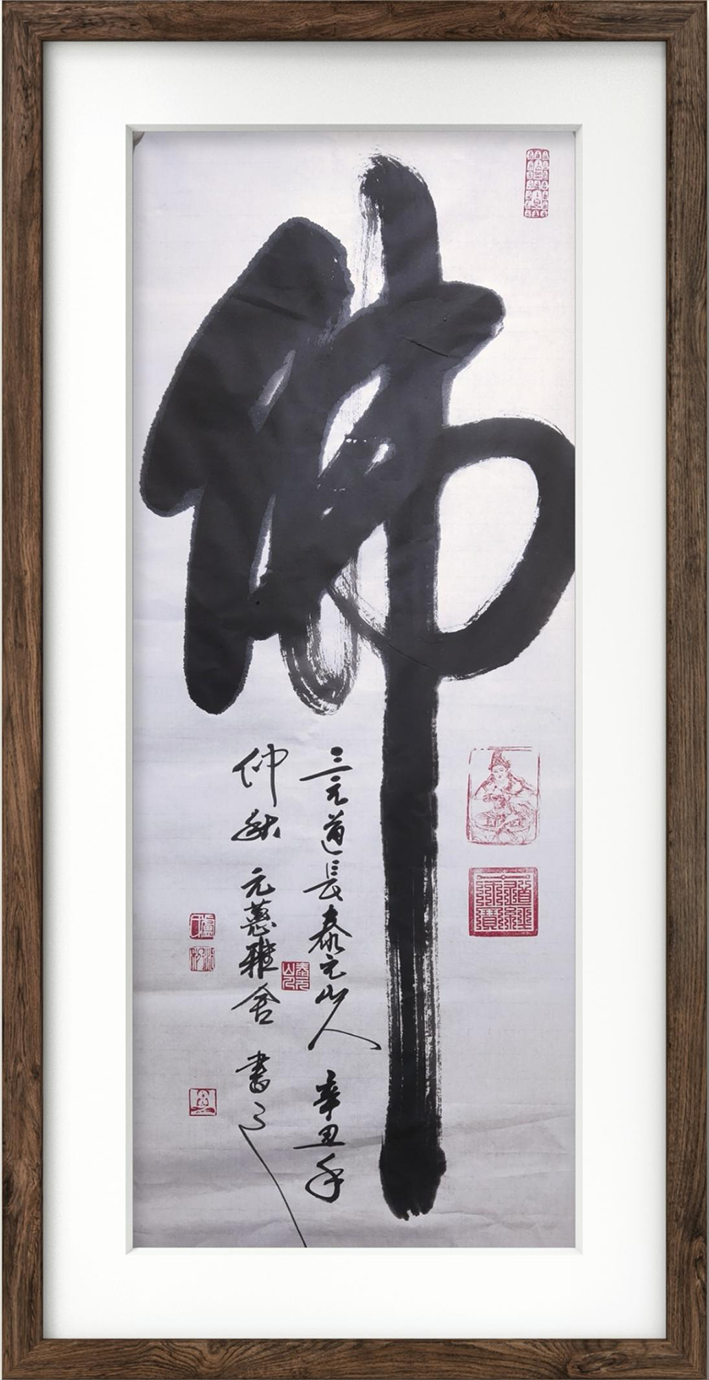 佛
三元道長泰元山人 辛丑年
仲秋 元蕙雅舍 書之